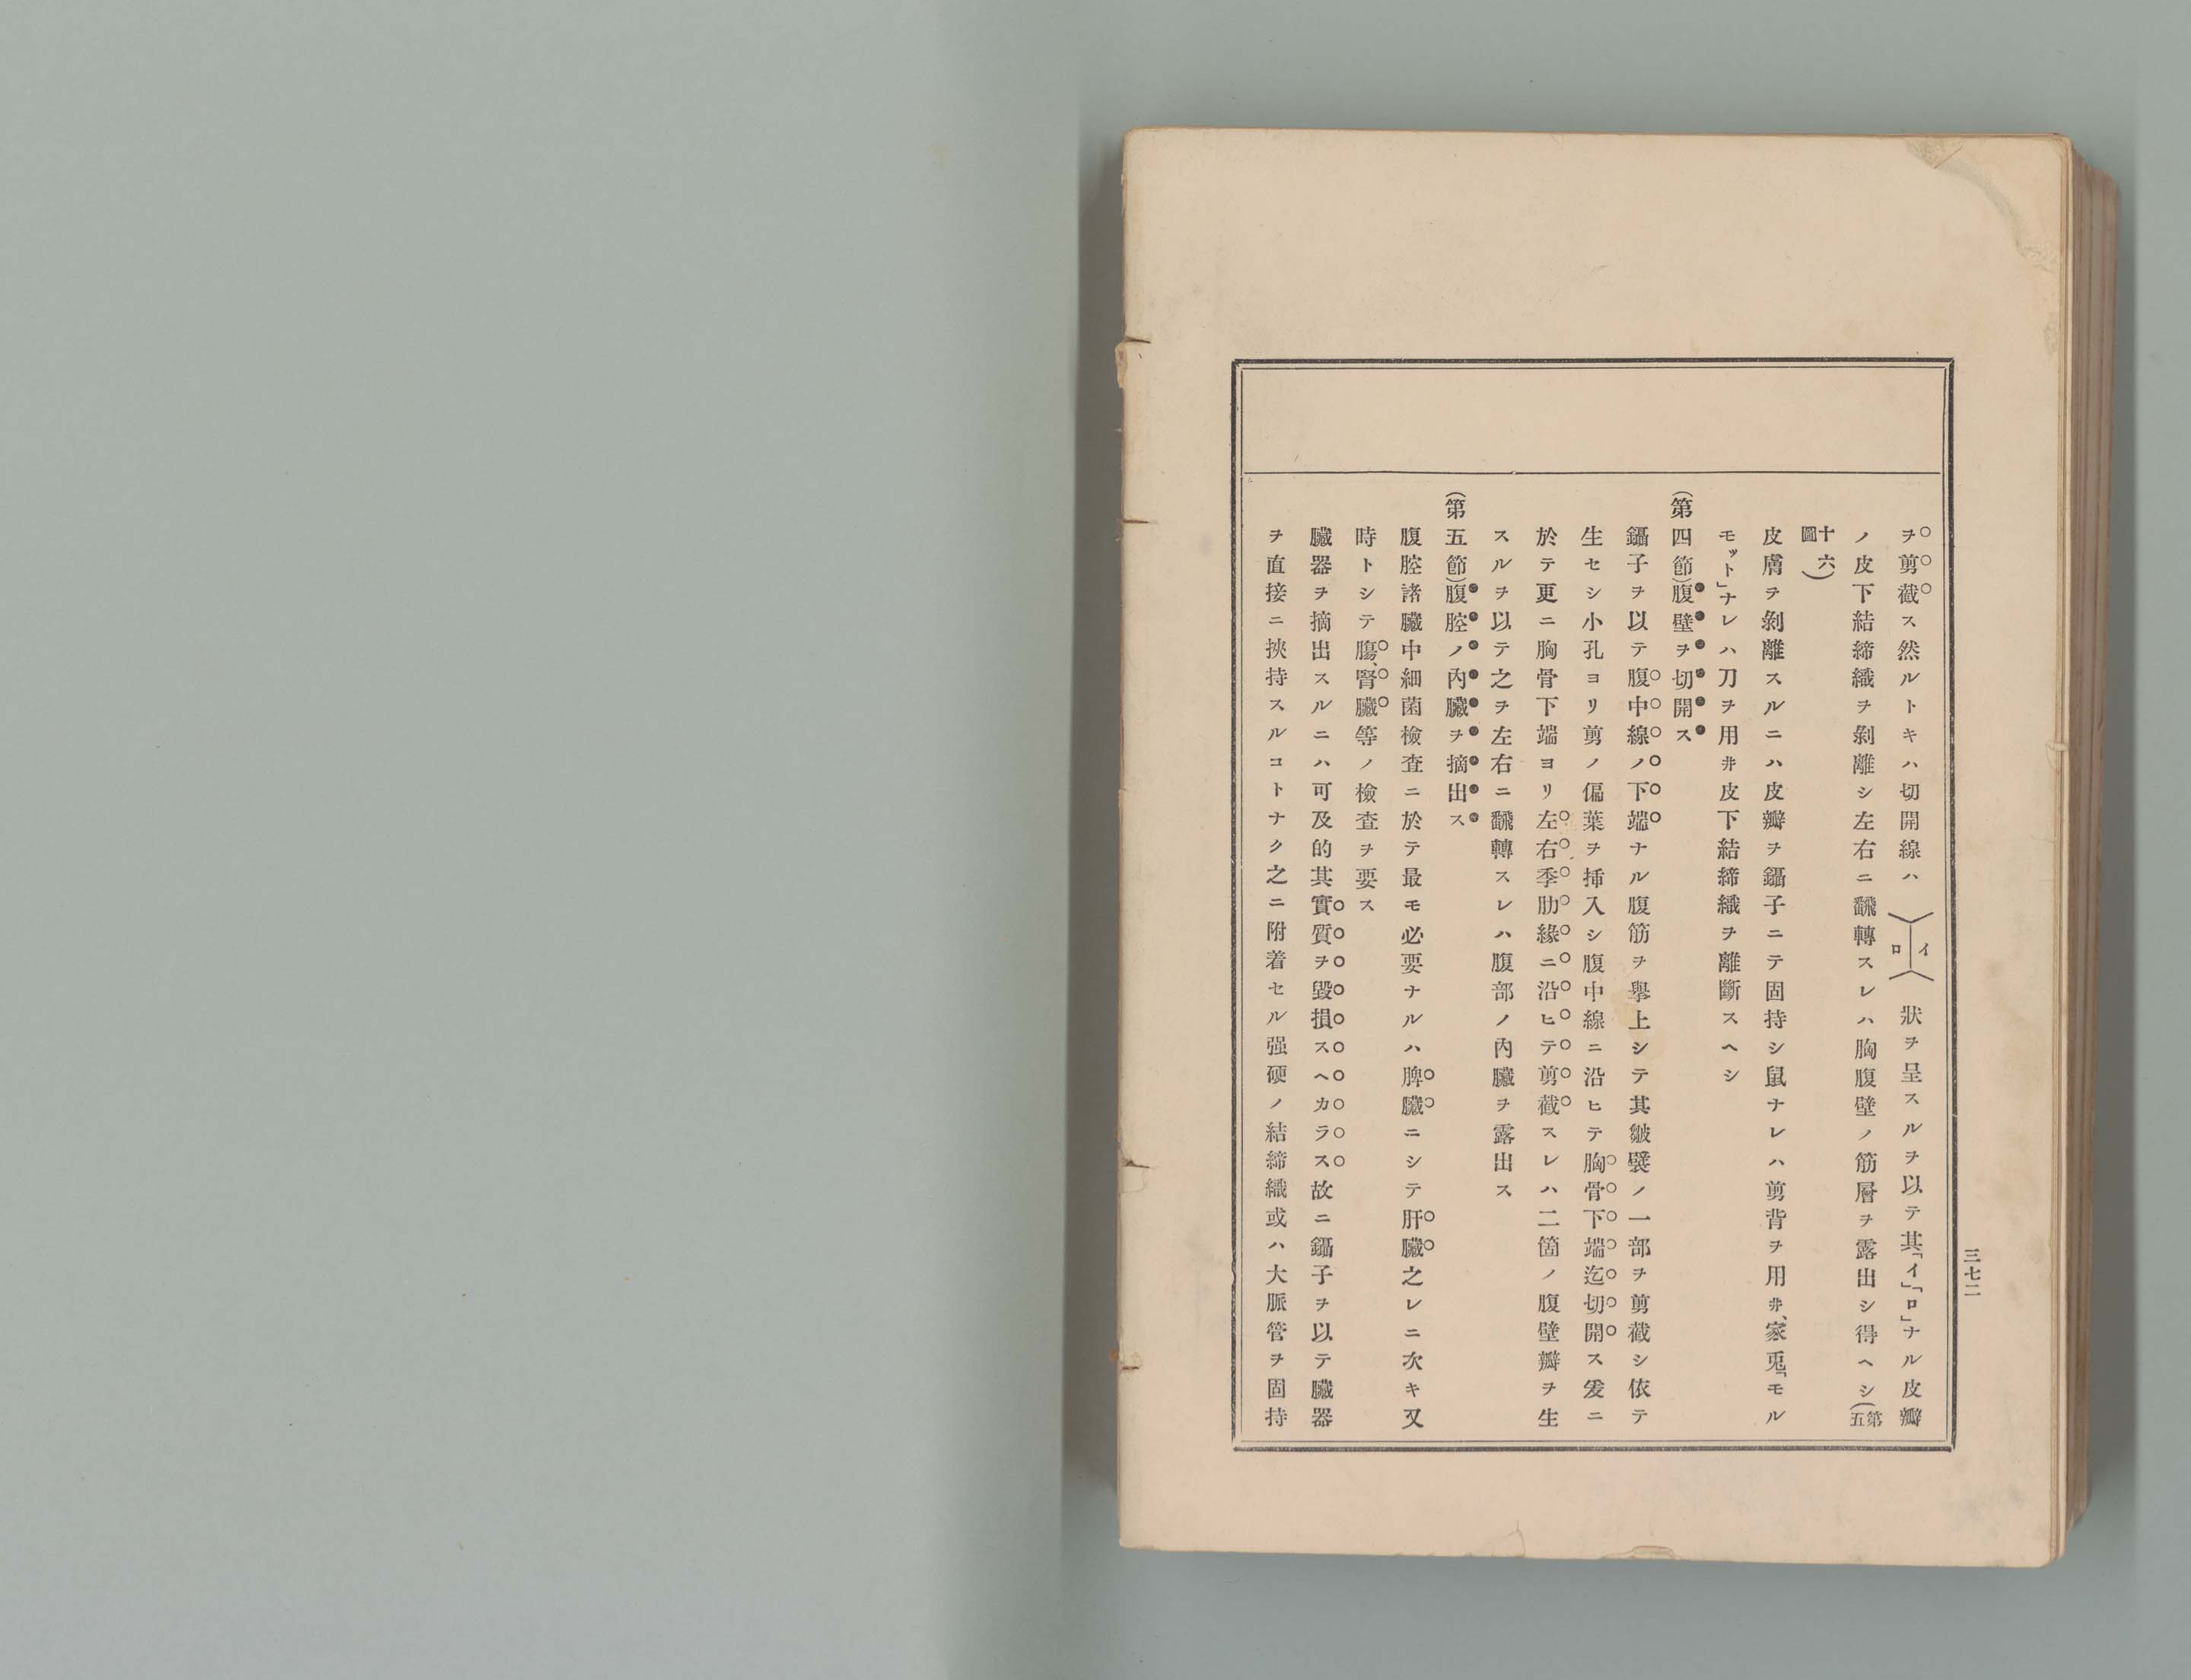 三七二
ヲ剪截ス然ルトキハ切開線ハ
イ
ロ
狀ヲ呈スルヲ以テ其「イ」「ロ」ナル皮瓣
ノ皮下結締織ヲ剝離シ左右ニ飜轉スレハ胸腹壁ノ筋層ヲ露出シ得ヘシ(第五
十六圖)
皮膚ヲ剝離スルニハ皮瓣ヲ鑷子ニテ固持シ鼠ナレハ剪背ヲ用井、家兎「モル
モット」ナレハ刀ヲ用井皮下結締織ヲ離斷スヘシ
(第四節)腹壁ヲ切開ス
鑷子ヲ以テ腹中線ノ下端ナル腹筋ヲ擧上シテ其皺襞ノ一部ヲ剪截シ依テ
生セシ小孔ヨリ剪ノ偏葉ヲ挿入シ腹中線ニ沿ヒテ胸骨下端迄切開ス爰ニ
於テ更ニ胸骨下端ヨリ左右季肋緣ニ沿ヒテ剪截スレハ二箇ノ腹壁瓣ヲ生
スルヲ以テ之ヲ左右ニ飜轉スレハ腹部ノ內臟ヲ露出ス
(第五節)腹腔ノ內臟ヲ摘出ス
腹腔諸臟中細菌檢査ニ於テ最モ必要ナルハ脾臟ニシテ肝臟之レニ次キ又
時トシテ膓、腎臟等ノ檢査ヲ要ス
臟器ヲ摘出スルニハ可及的其實質ヲ毀損スヘカラス故ニ鑷子ヲ以テ臟器
ヲ直接ニ挾持スルコトナク之ニ附着セル强硬ノ結締織或ハ大脈管ヲ固持